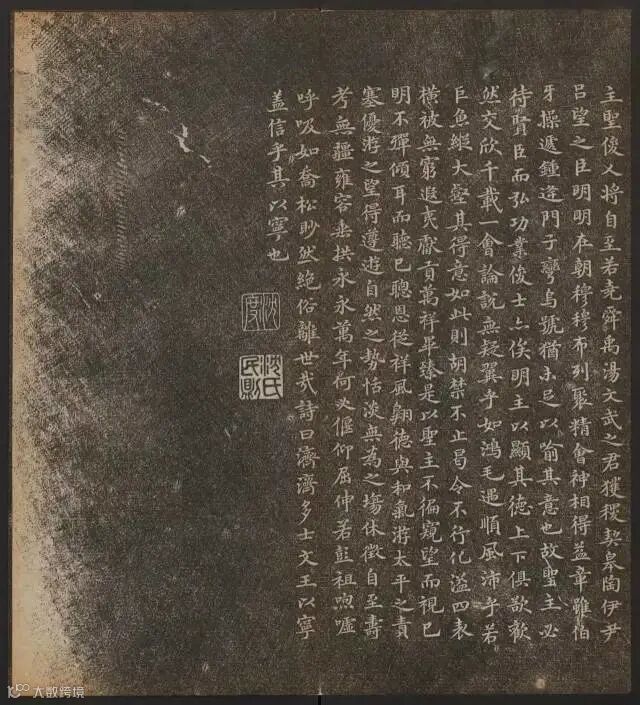 主聖俊乂將自至若堯舜禹湯文武之君獲稷契皋陶伊尹
吕望之臣明明在朝穆穆布列聚精會神相得益章雖伯
牙操遞鍾逢門子彎烏號猶未足以喻其意也故聖主必
待賢臣而弘功業俊士亦俟明主以顯其德上下俱欲歡
然交欣千載一會論說無疑翼乎如鴻毛遇順風沛乎若
巨魚縱大壑其得意如此則胡禁不止曷令不行化溢四表
橫被無窮遐夷獻貢萬祥畢臻是以聖主不徧窺望而視已
明不彈傾耳而聽已聰恩從祥風翱德與和氣游太平之責
塞優游之望得遵遊自然之勢恬淡無為之場休徵自至壽
考無疆雍容垂拱永永萬年何必偃仰屈伸若彭祖喣噓
呼吸如喬松眇然絕俗離世哉詩曰濟濟多士文王以寧
盖信乎其以寧也
沈度
沈氏民則
大数跨境